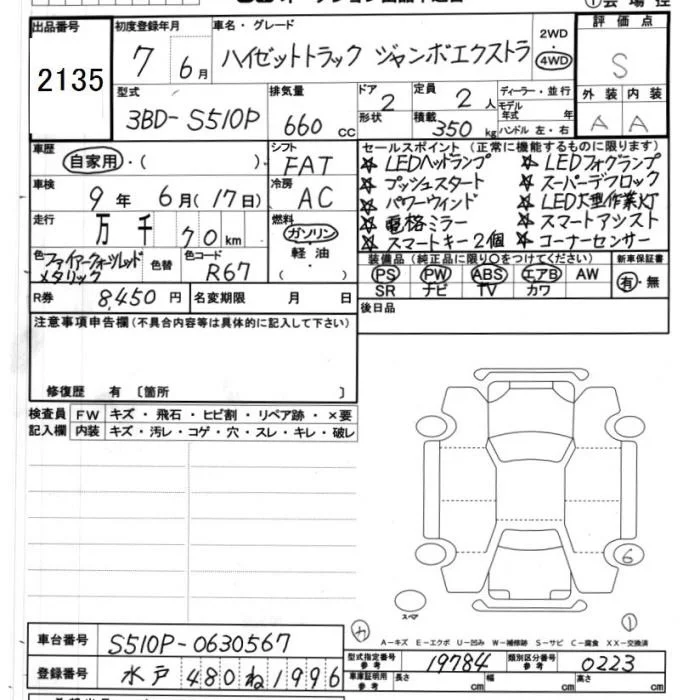 ①会場控
出品番号
2135
初度登録年月
7 6月
車名・グレード
ハイゼットトラック ジャンボエクストラ
2WD
・
4WD
評価点
S
外装 内装
A A
型式
3BD-S510P
排気量
660 cc
ドア
2
形状
定員
2 人
積載
350 kg
ディーラー・並行
モデル年式 年
ハンドル 左・右
車歴
自家用・( )
シフト
FAT
車検
9年 6月(17日)
冷房
AC
走行
万 千 70km
燃料
ガソリン
・
軽油
( )
色 ファイアークォーツレッドメタリック
色替
色コード
R67
R券 8,450円
名変期限 月 日
セールスポイント(正常に機能するものに限ります)
☆ LEDヘッドランプ ☆ LEDフォグランプ
☆ プッシュスタート ☆ スーパーデフロック
☆ パワーウィンド ☆ LED大型作業灯
☆ 電格ミラー ☆ スマートアシスト
☆ スマートキー2個 ☆ コーナーセンサー
装備品(純正品に限り○をつけてください)
PS PW ABS エアB AW
SR ナビ TV カワ
新車保証書
有・無
後日品
注意事項申告欄(不具合内容等は具体的に記入して下さい)
修復歴 有〔箇所 〕
検査員記入欄
FW キズ・飛石・ヒビ割・リペア跡・×要
内装 キズ・汚レ・コゲ・穴・スレ・キレ・破レ
6
スペア
①
A-キズ E-エクボ U-凹み W-補修跡 S-サビ C-腐食 XX-交換済
車台番号
S510P-0630567
登録番号
水戸 480 ね 1996
型式指定番号参考
19784
類別区分番号参考
0223
車庫証明用参考
長さ cm
幅 cm
高さ cm